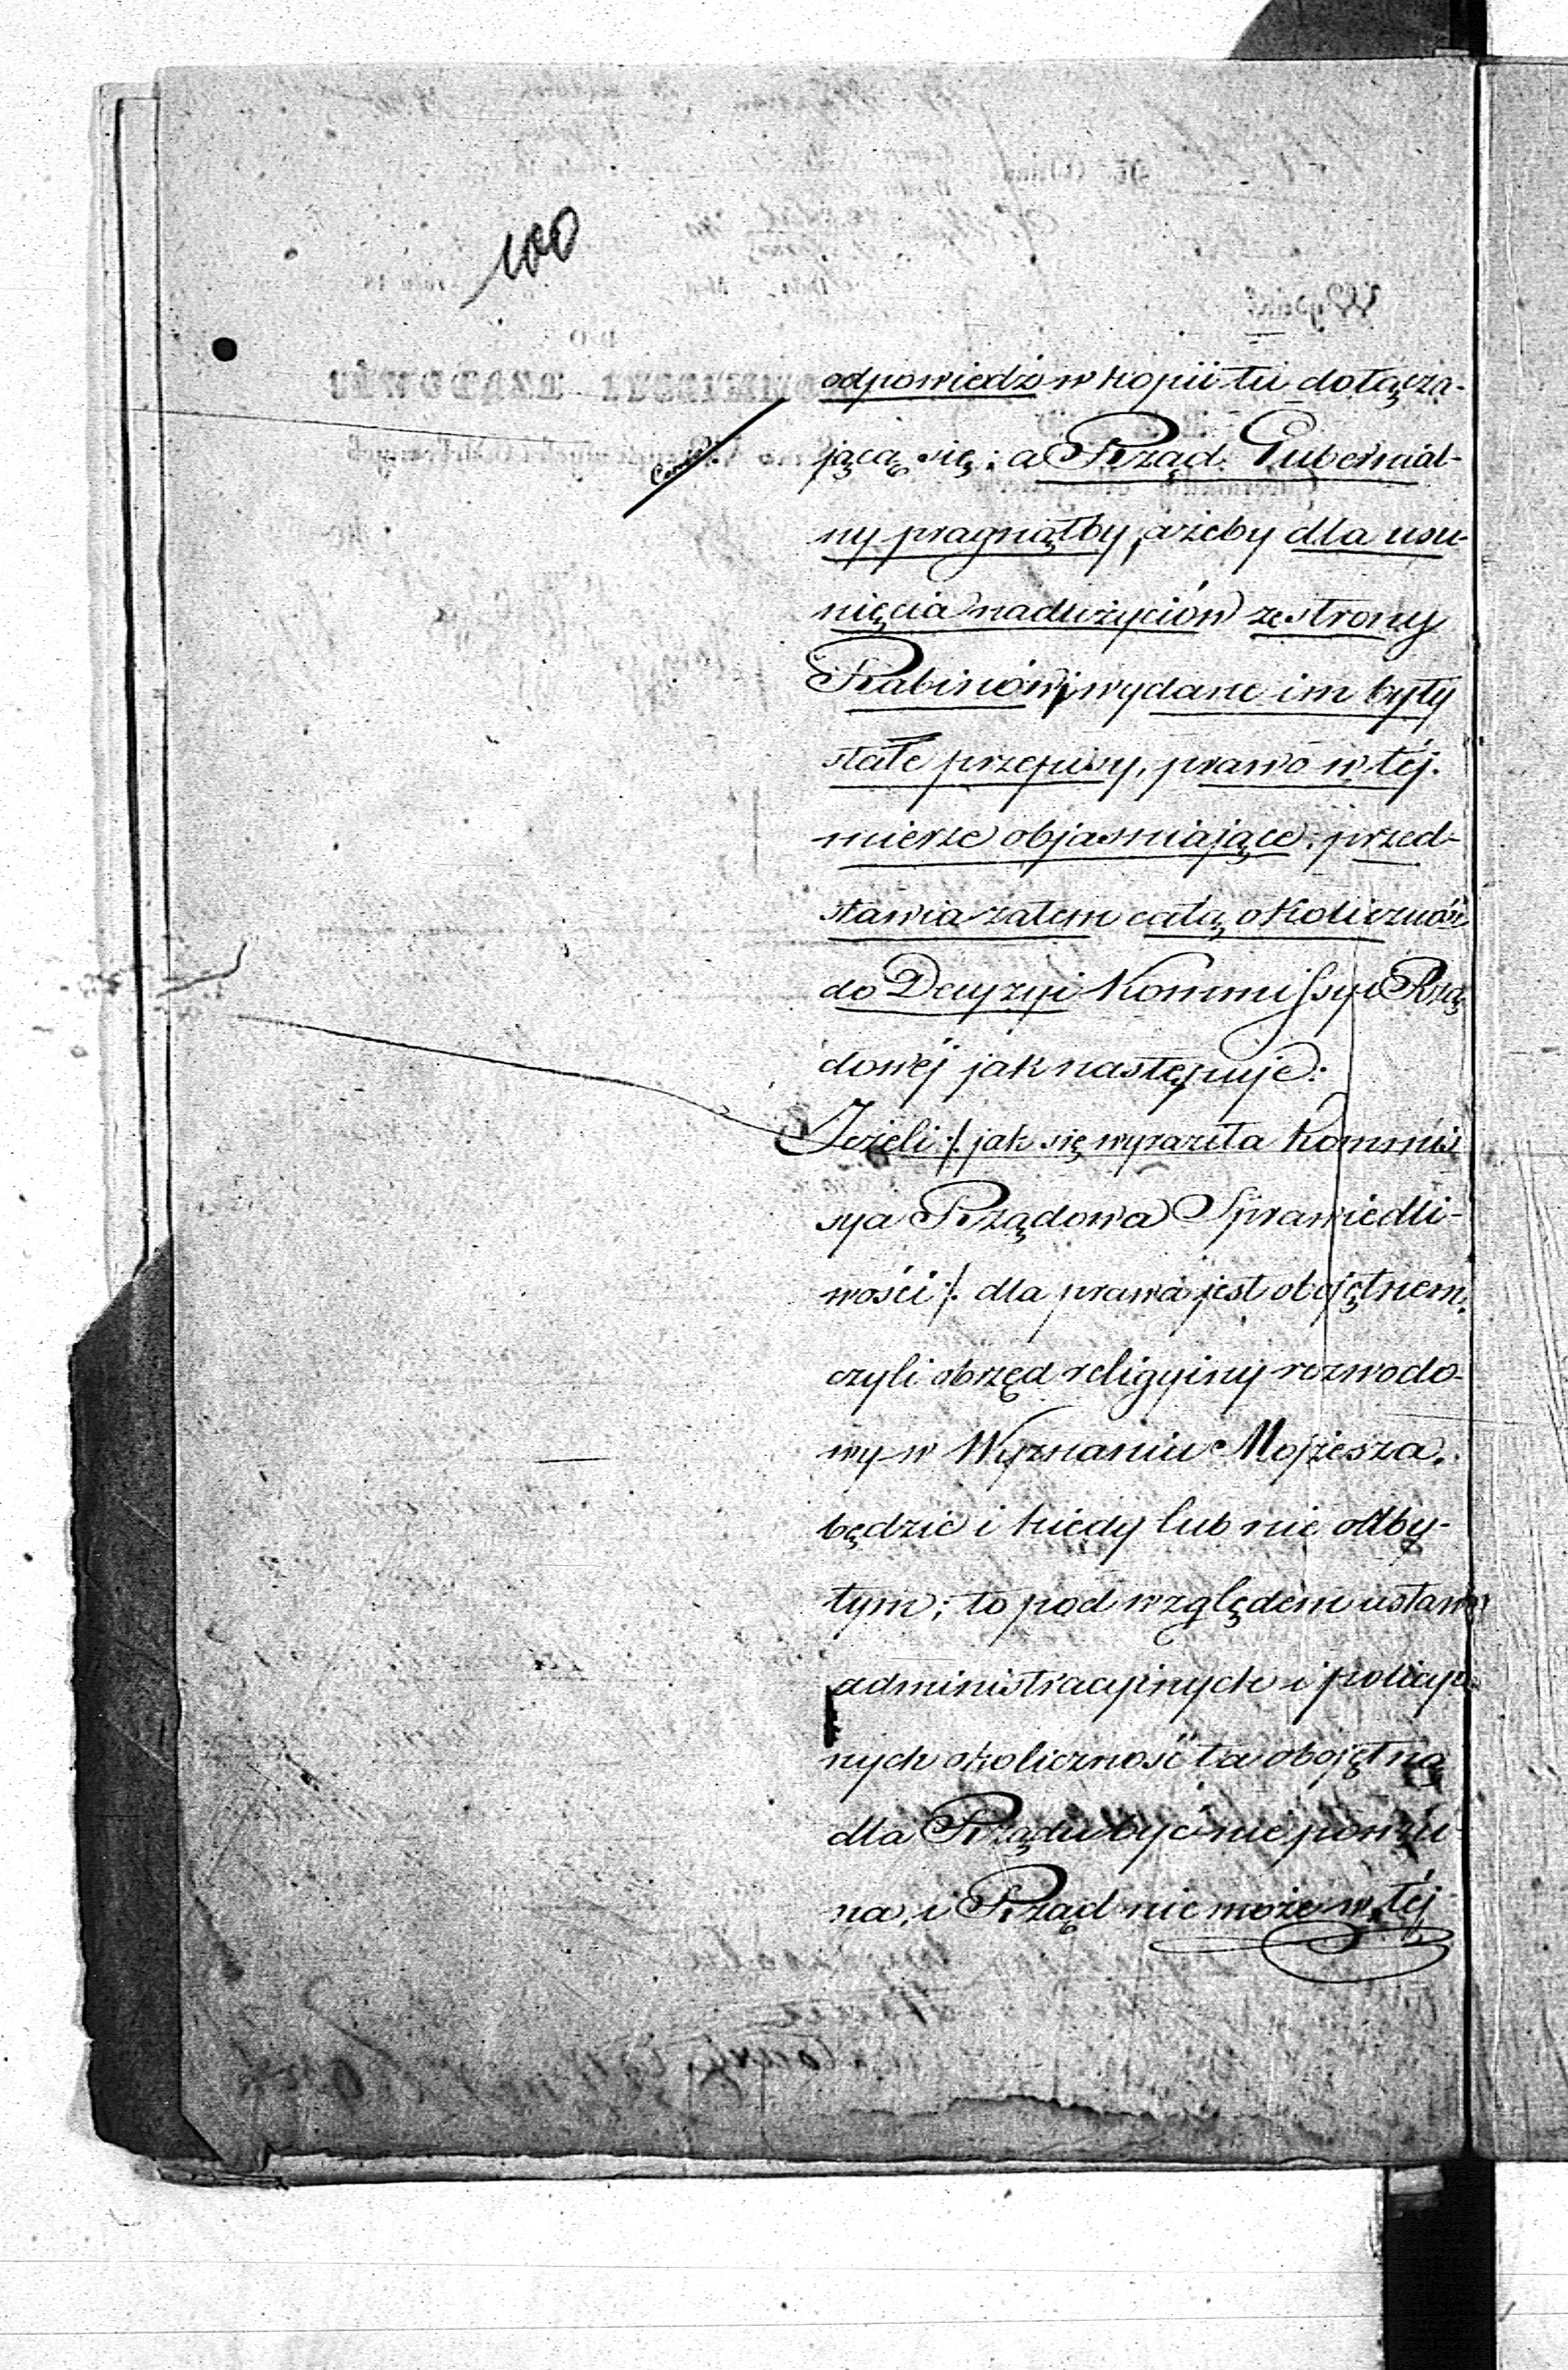 100
odpowiedź w kopii tu dołącza-
jącą się; a Rząd Gubernial-
ny pragnąłby, ażeby dla usu-
nięcia nadużyciów ze strony
Rabinów, wydane im były
stałe przepisy, prawo w tej
mierze objasniające; przed-
stawia zatem całą okoliczność
do Decyzyi Kommissyi Rzą
dowéj jak następuje:
Jeżeli /: jak się wyraziła Kommis
sya Rządowa Sprawiedli-
wości :/ dla prawa jest obojętnem,
czyli obrzęd religyiny rozwodo-
wy w Wyznaniu Mojżesza,
będzie i kiedy lub nie odby-
tym; to pod względem ustaw
administracyinych i policyi-
nych okoliczność ta obojętną
dla Rządu być nie powin-
na, i Rząd nie może w téj